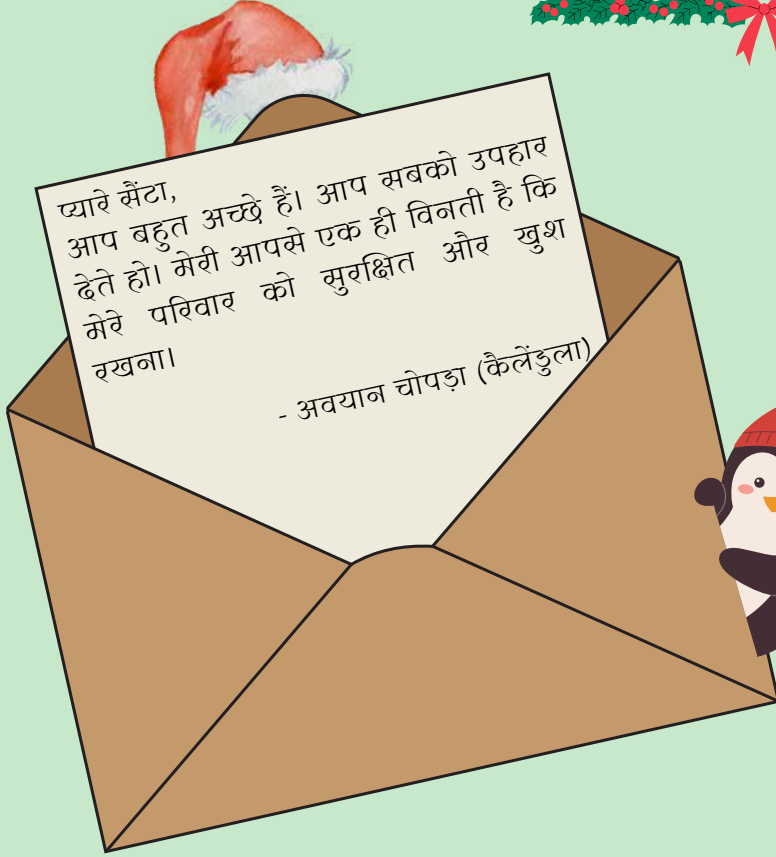 प्यारे सैंटा,
आप बहुत अच्छे हैं। आप सबको उपहार
देते हो। मेरी आपसे एक ही विनती है कि
मेरे परिवार को सुरक्षित और खुश
रखना।
- अवयान चोपड़ा (कैलेंडुला)